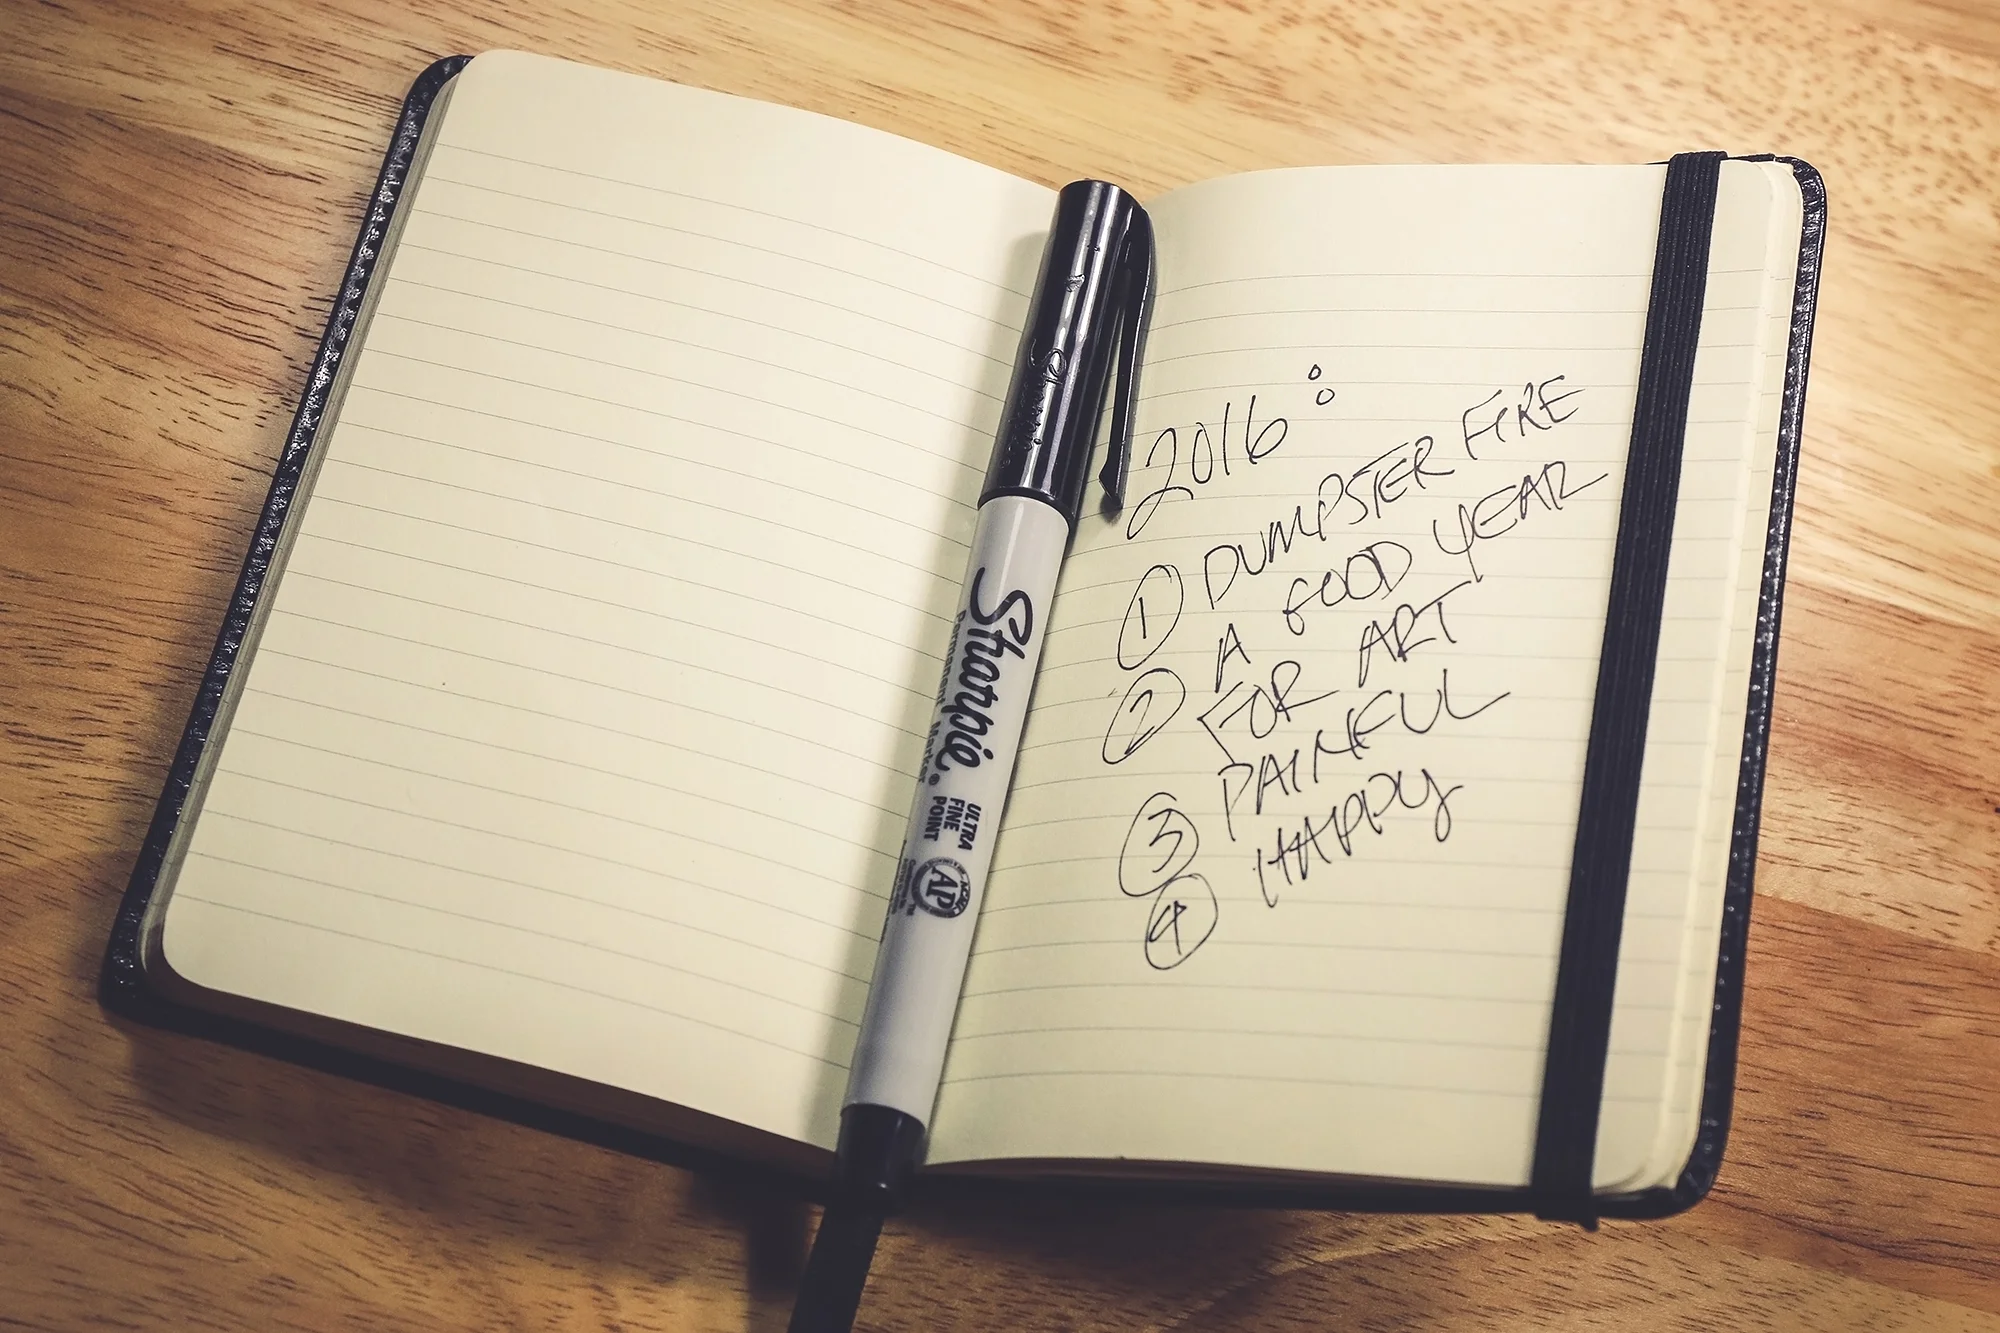 2016:
1 DUMPSTER FIRE
2 A GOOD YEAR
FOR ART
3 PAINFUL
4 HAPPY
Sharpie
Sharpie
Permanent Marker®
ULTRA
FINE
POINT
AP